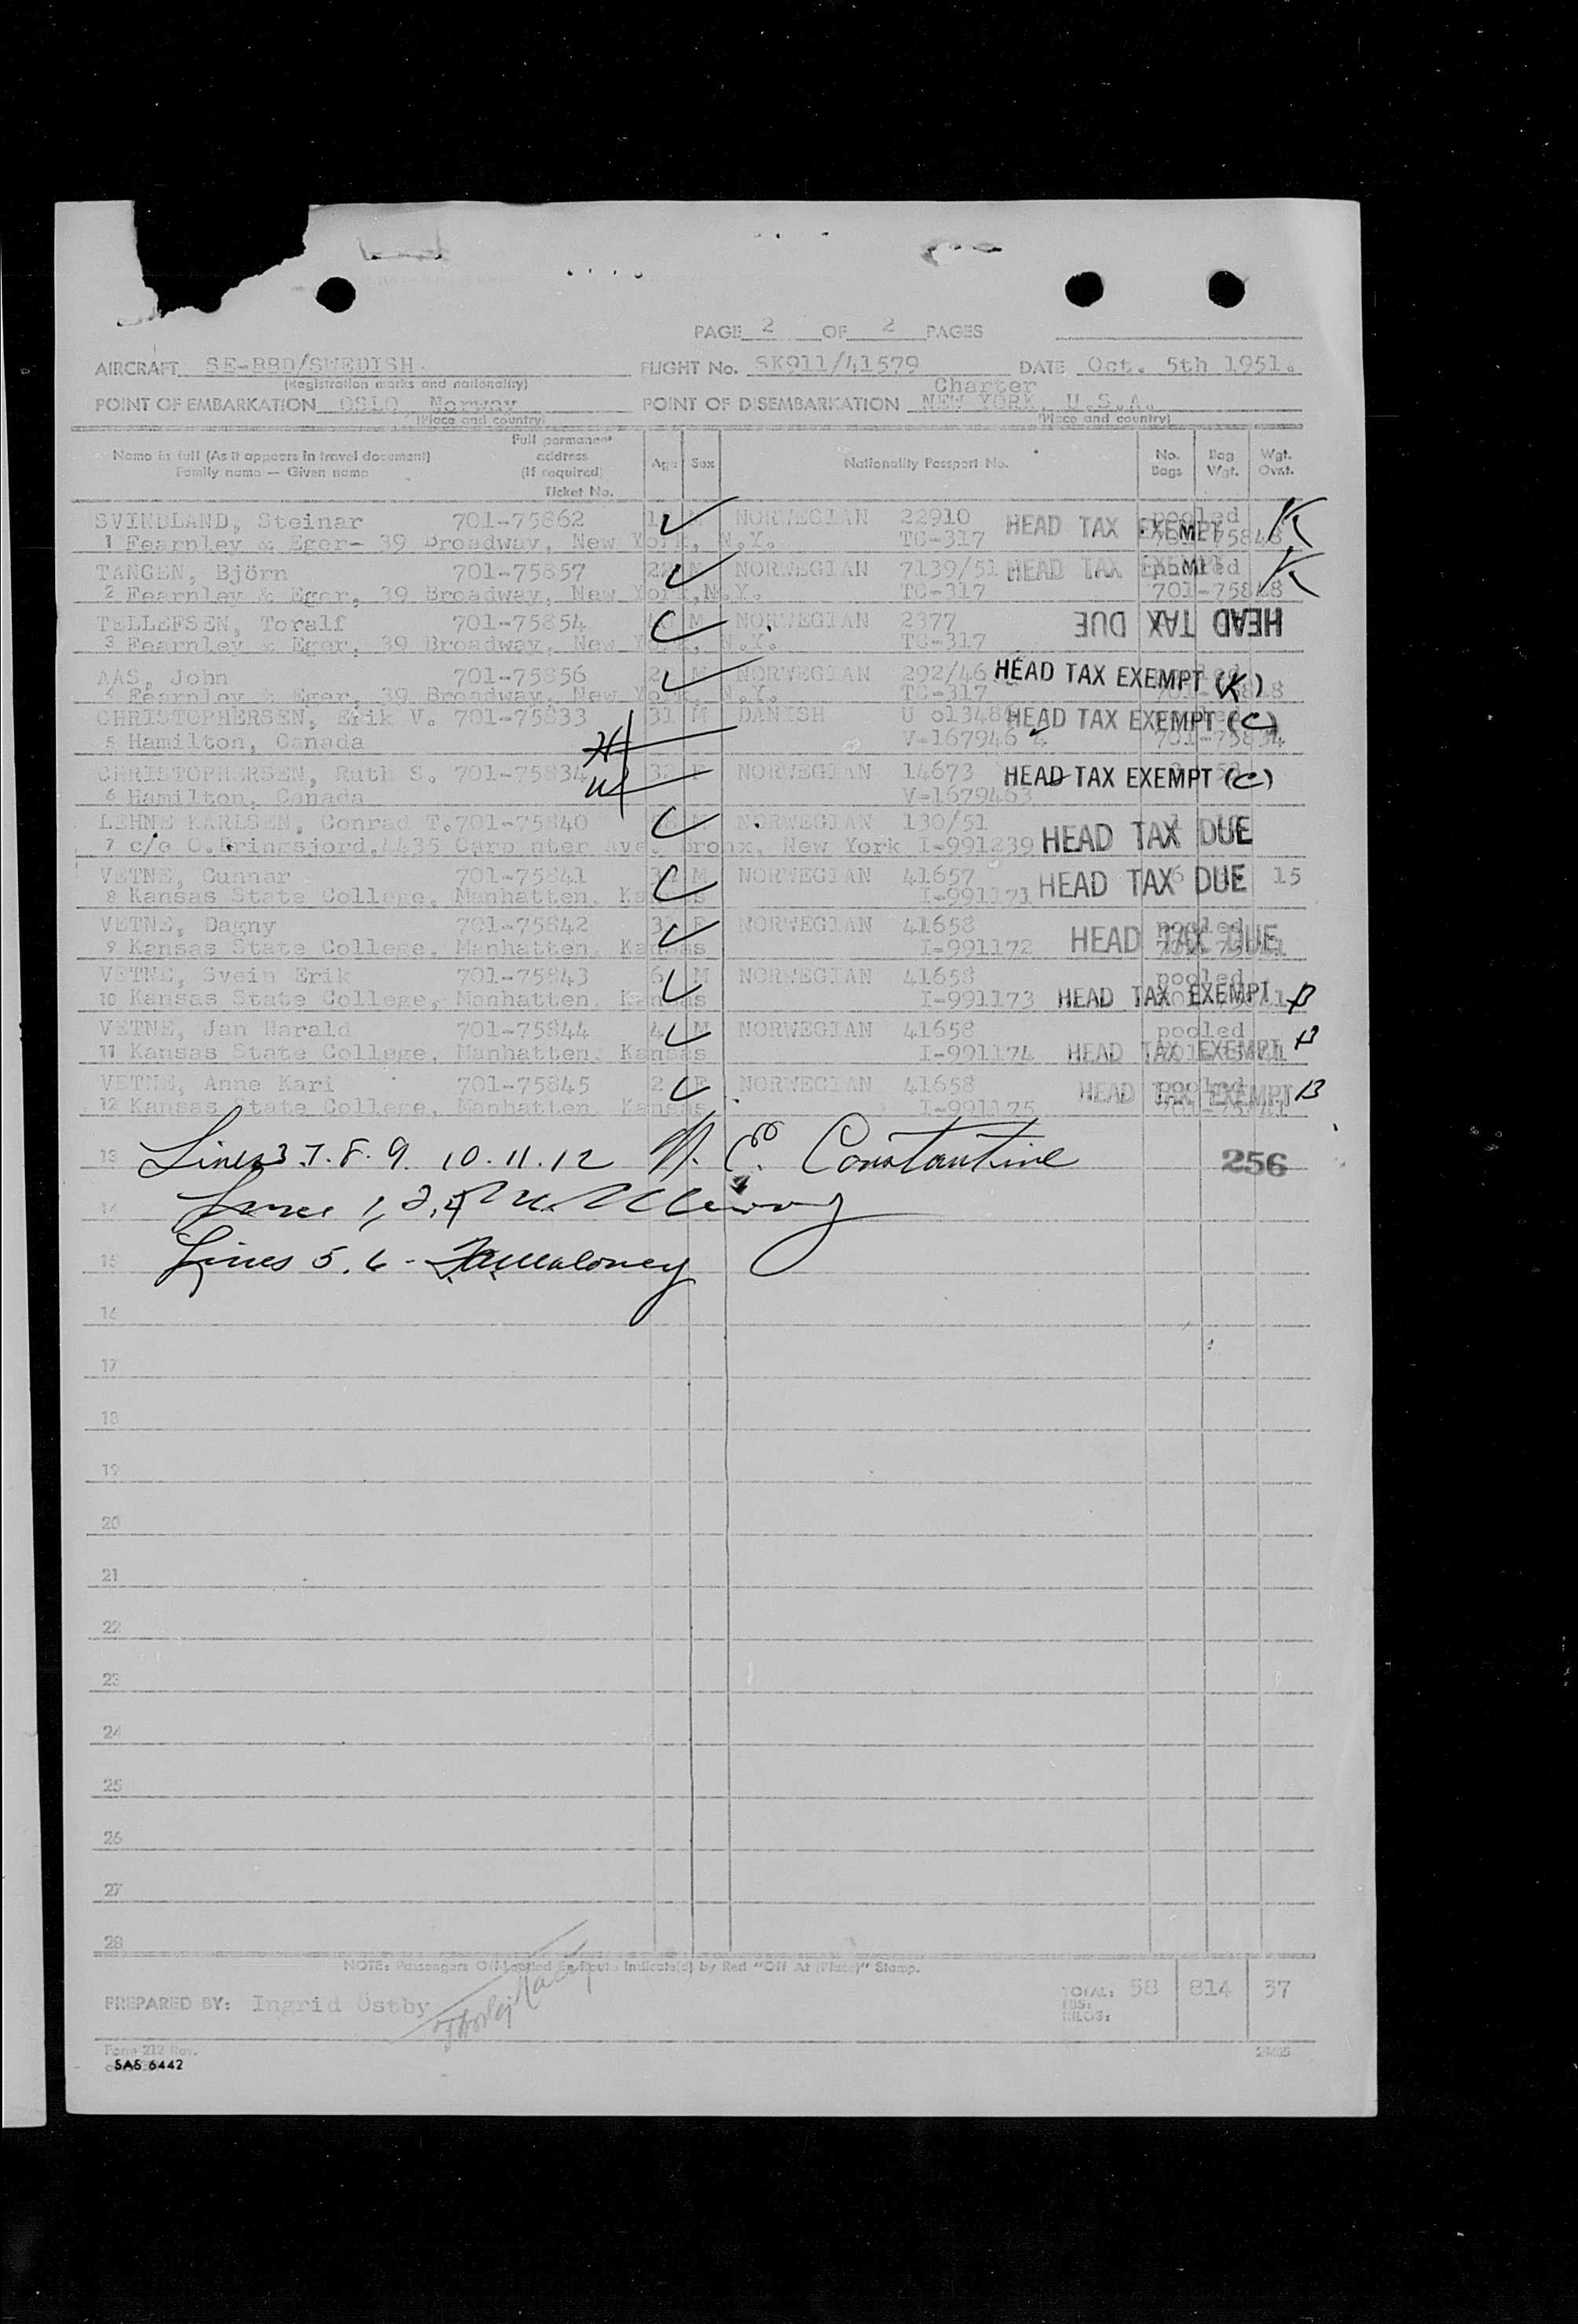 PAGE 2 OF 2 PAGES
AIRCRAFT SE-BBD/SWEDISH. FLIGHT No. SK911/41579 DATE Oct. 5th 1951.
(Registration marks and nationality) Charter
POINT OF EMBARKATION OSLO, Norway POINT OF DISEMBARKATION NEW YORK, U.S.A.
(Place and country) (Place and country)
Name in full (As it appears in travel document) Family name — Given name Full permanent address (If required) Ticket No. Age Sex Nationality Passport No. No. Bags Bag Wgt. Wgt. Ovnt.
SVINDLAND, Steinar 701-75862 M NORWEGIAN 22910 HEAD TAX EXEMPT pooled K
1 Fearnley & Eger- 39 Broadway, New York, N.Y. TC-317
TANGEN, Björn 701-75857 22 M NORWEGIAN 7139/51 HEAD TAX EXEMPT pooled K
2 Fearnley & Eger, 39 Broadway, New York, N.Y. TC-317 701-75848
TELLEFSEN, Toralf 701-75854 M NORWEGIAN 2377 HEAD TAX DUE
3 Fearnley & Eger, 39 Broadway, New York, N.Y. TC-317
AAS, John 701-75856 M NORWEGIAN 292/46 HEAD TAX EXEMPT (K)
4 Fearnley & Eger, 39 Broadway, New York, N.Y. TC-317
CHRISTOPHERSEN, Erik V. 701-75833 31 M DANISH HEAD TAX EXEMPT (C)
5 Hamilton, Canada V-167946 4 701-75834
CHRISTOPHERSEN, Ruth S. 701-75834 32 F NORWEGIAN 14673 HEAD TAX EXEMPT (C)
6 Hamilton, Canada V-1679463
LEHNE KARLSEN, Conrad T. 701-75840 M NORWEGIAN 130/51 HEAD TAX DUE
7 c/o O. Bringsjord, 4435 Carp nter Ave. Bronx, New York I-991239
VETNE, Gunnar 701-75841 M NORWEGIAN 41657 HEAD TAX DUE 6 15
8 Kansas State College, Manhatten, Kansas I-991171
VETNE, Dagny 701-75842 F NORWEGIAN 41658 pooled
9 Kansas State College, Manhatten, Kansas I-991172 HEAD TAX DUE
VETNE, Svein Erik 701-75843 6 M NORWEGIAN 41658 pooled
10 Kansas State College, Manhatten, Kansas I-991173 HEAD TAX EXEMPT B
VETNE, Jan Harald 701-75844 4 M NORWEGIAN 41658 pooled B
11 Kansas State College, Manhatten, Kansas I-991174 HEAD TAX EXEMPT
VETNE, Anne Kari 701-75845 2 F NORWEGIAN 41658 HEAD TAX EXEMPT pooled B
12 Kansas State College, Manhatten, Kansas I-991175
13 Lines 3.7.8.9. 10.11.12 N. E. Constantine 256
14 Lines 1, 2, 4
15 Lines 5.6 - Maloney
16
17
18
19
20
21
22
23
24
25
26
27
28
NOTE: Passengers Off-loaded En Route Indicate(d) by Red "Off At (Place)" Stamp.
PREPARED BY: Ingrid Östby TOTAL: 58 814 37
LBS:
KILOS:
Form 212 Rev.
SAS 6442